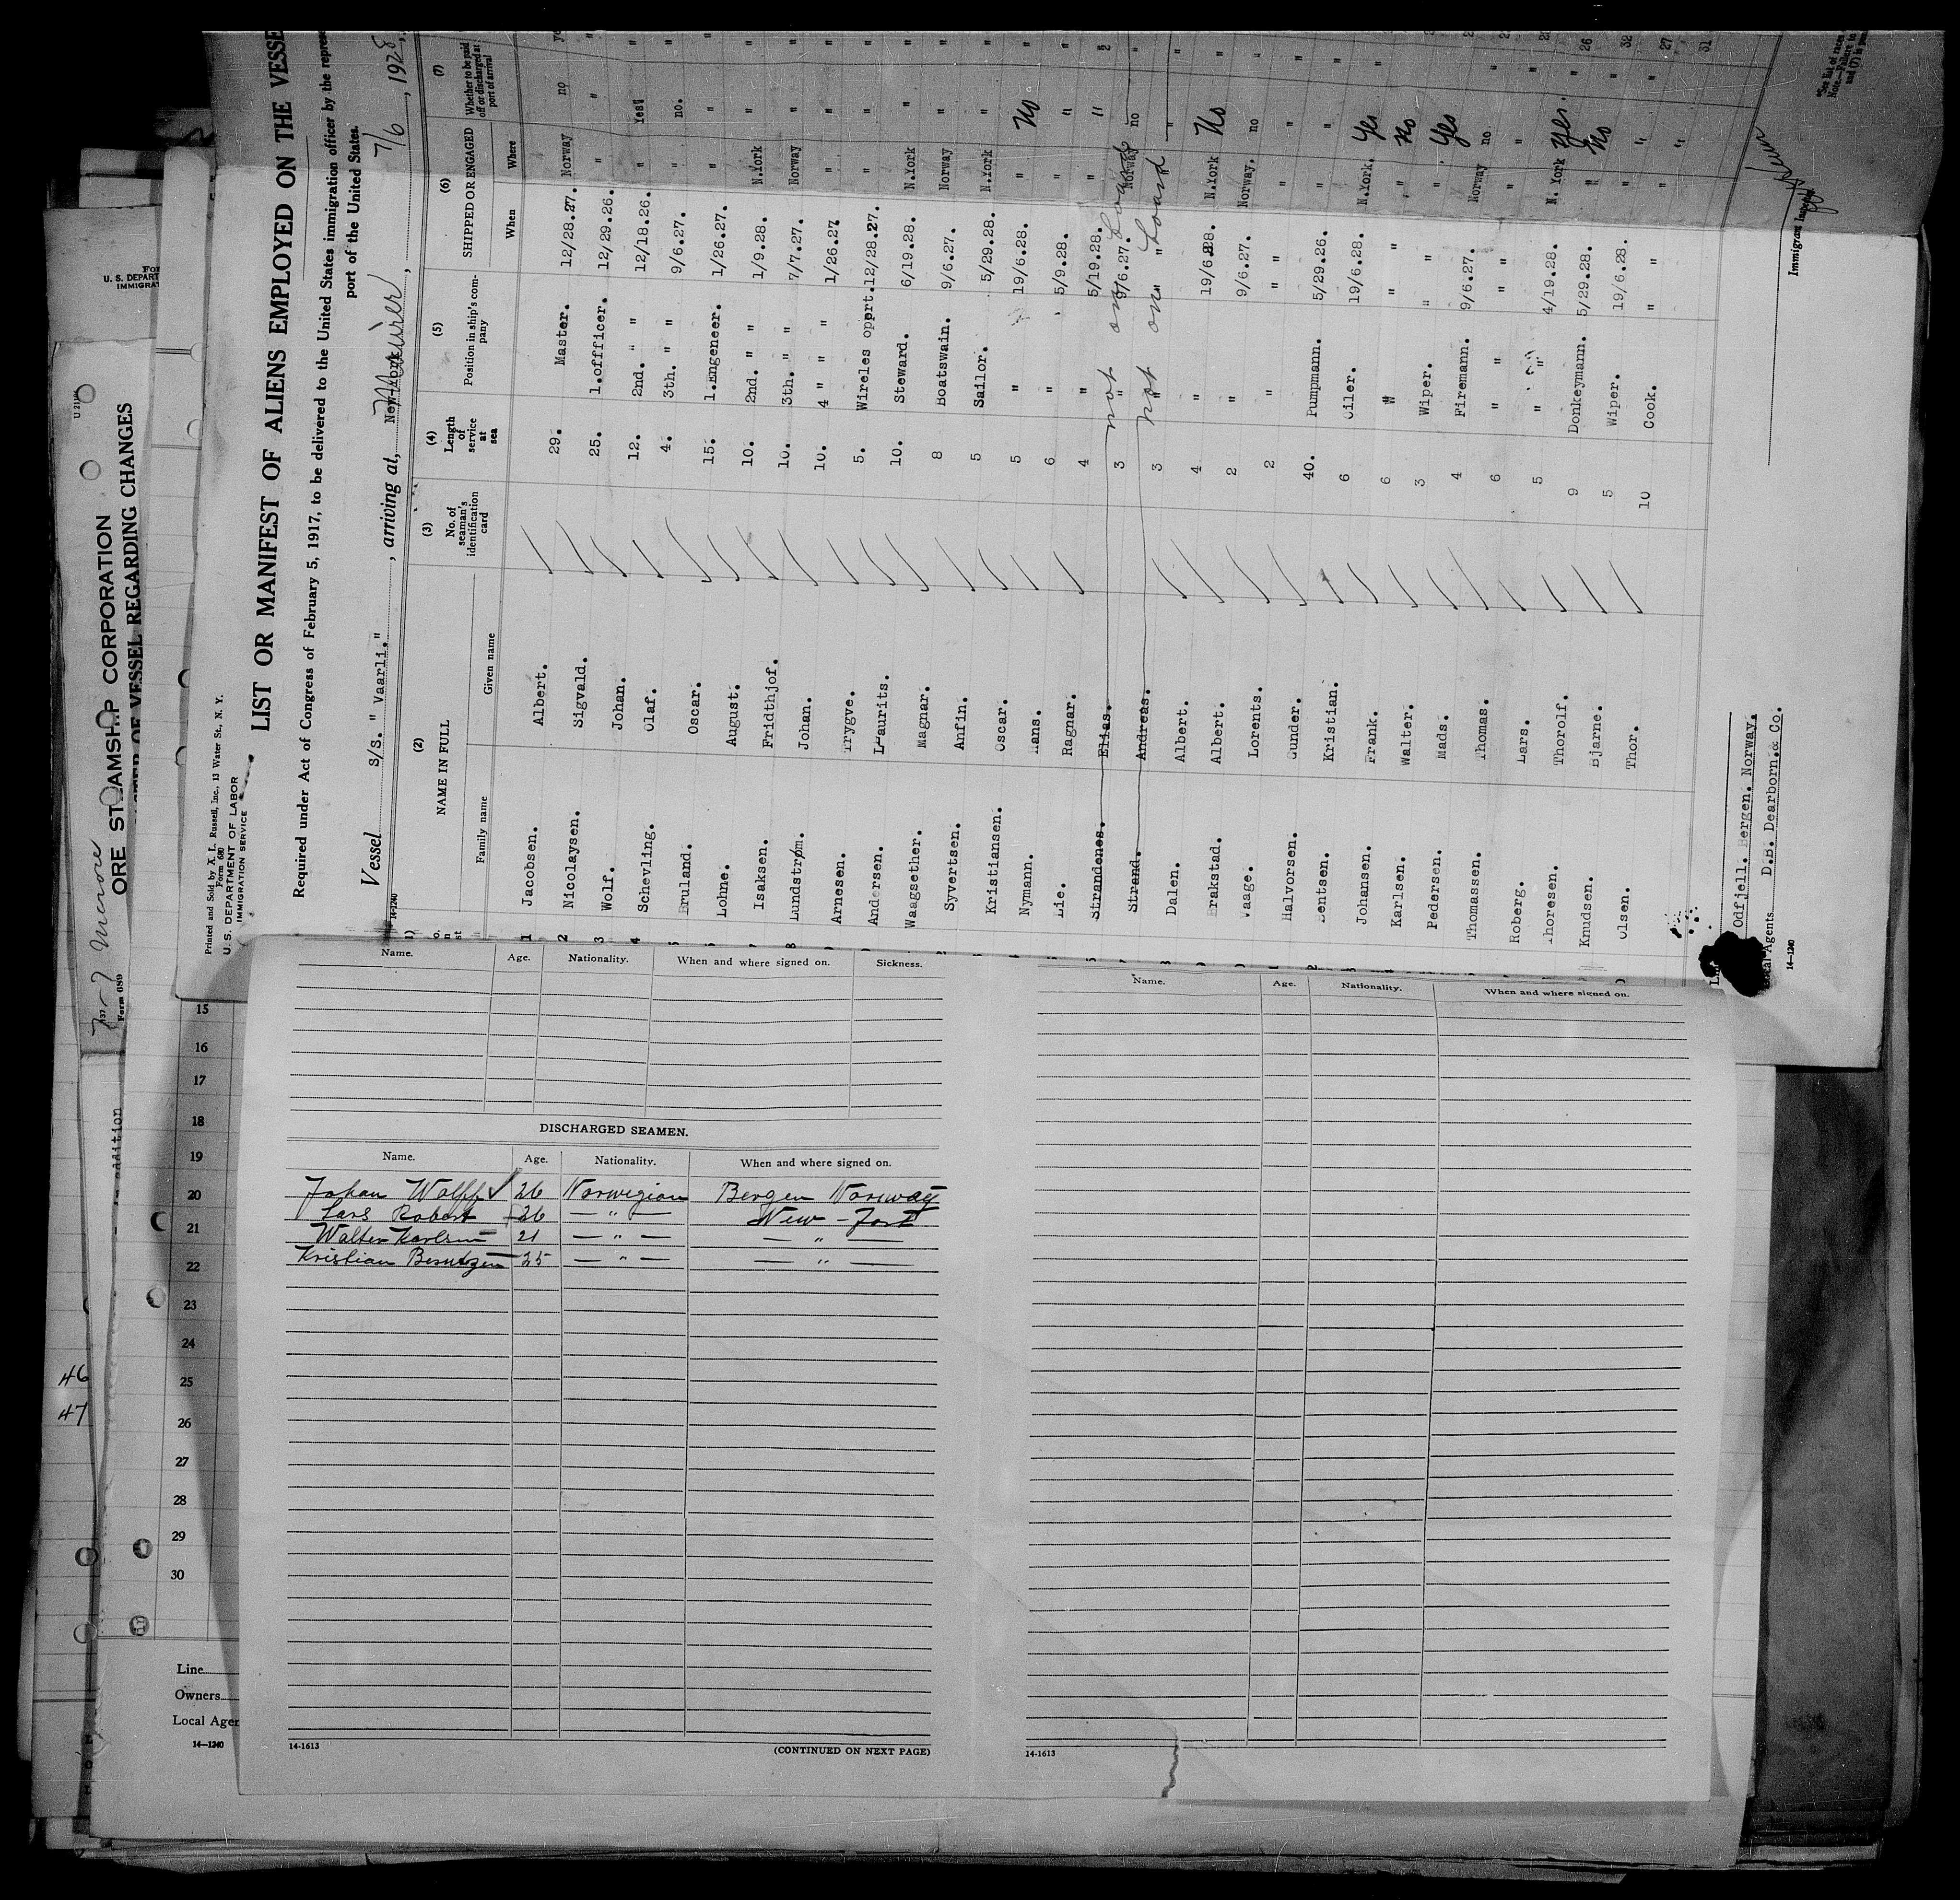 Printed and Sold by X. L. Russell, Inc., 13 Water St., N. Y.
Form 680
U. S. DEPARTMENT OF LABOR
IMMIGRATION SERVICE
LIST OR MANIFEST OF ALIENS EMPLOYED ON THE VESSE
Required under Act of Congress of February 5, 1917, to be delivered to the United States immigration officer by the represe
port of the United States.
Vessel S/S. " Vaarli." , arriving at, New York 7/6 , 1928,
14-1240
(2) (3) (4) (5) (6) (7)
NAME IN FULL No. of seaman's identification card Length of service at sea Position in ship's company SHIPPED OR ENGAGED Whether to be paid off or discharged at port of arrival
Family name Given name When Where
1 Jacobsen. Albert. 29. Master. 12/28.27. Norway no
2 Nicolaysen. Sigvald. 25. 1.offficer. 12/29.26. " "
3 Wolf. Johan. 12. 2nd. " " 12/18.26. " Yes
4 Schevling. Olaf. 4. 3th. " " 9/6.27. " no.
Bruland. Oscar. 15. 1.Engeneer. 1/26.27. " "
Lohne. August. 10. 2nd. " " 1/9.28. N.York "
Isaksen. Fridthjof. 10. 3th. " " 7/7.27. Norway "
8 Lundstrøm. Johan. 10. 4 " " 1/26.27 " "
Arnesen. Trygve. 5. Wireles opprt. 12/28.27. " "
Andersen. Laurits. 10. Steward. 6/19.28. N.York "
Waagsether. Magnar. 8 Boatswain. 9/6.27. Norway "
Syvertsen. Anfin. 5 Sailor. 5/29.28. N.York "
Kristiansen. Oscar. 5 " 19/6.28. " No
Nymann. Hans. 6 " 5/9.28. " "
Lie. Ragnar. 4 " 5/19.28. " "
Strandenes. Elias. 3 " 9/6.27. Norway no not on board
Strand. Andreas. 3 " " " not on board
Dalen. Albert. 4 " 19/6.28. N.York No
Brakstad. Albert. 2 " 9/6.27. Norway. no
Vaage. Lorents. 2 " " " "
Halvorsen. Gunder. 40. Pumpmann. 5/29.26. " "
Bentsen. Kristian. 6 Oiler. 19/6.28. N.York. Yes
Johansen. Frank. 6 " " " No
Karlsen. Walter. 3 Wiper. " " Yes
Pedersen. Mads. 4 Firemann. 9/6.27. Norway no
Thomassen. Thomas. 6 " " " "
Roberg. Lars. 5 " 4/19.28. N. York Yes.
Thoresen. Thorolf. 9 Donkeymann. 5/29.28. " No
Knudsen. Bjarne. 5 Wiper. 19/6.28. " "
Olsen. Thor. 10 Cook. " " "
Odfjell. Bergen. Norway.
Local Agents D.B. Dearborn.& Co.
14-1240
Immigrant Inspector
U. S. DEPART
IMMIGRAT
ORE STEAMSHIP CORPORATION
OF VESSEL REGARDING CHANGES
Form 689
addition
Name. Age. Nationality. When and where signed on. Sickness.
DISCHARGED SEAMEN.
Name. Age. Nationality. When and where signed on.
Johan Wolff 26 Norwegian Bergen Norway
Lars Robert 26 — " — New-York
Walter Karlsen 21 — " — — " —
Kristian Berntzen 25 — " — — " —
14-1613
(CONTINUED ON NEXT PAGE)
Name. Age. Nationality. When and where signed on.
14-1613
15
16
17
18
19
20
21
22
23
24
25
26
27
28
29
30
Line
Owners
Local Agen
14-1240
46
47